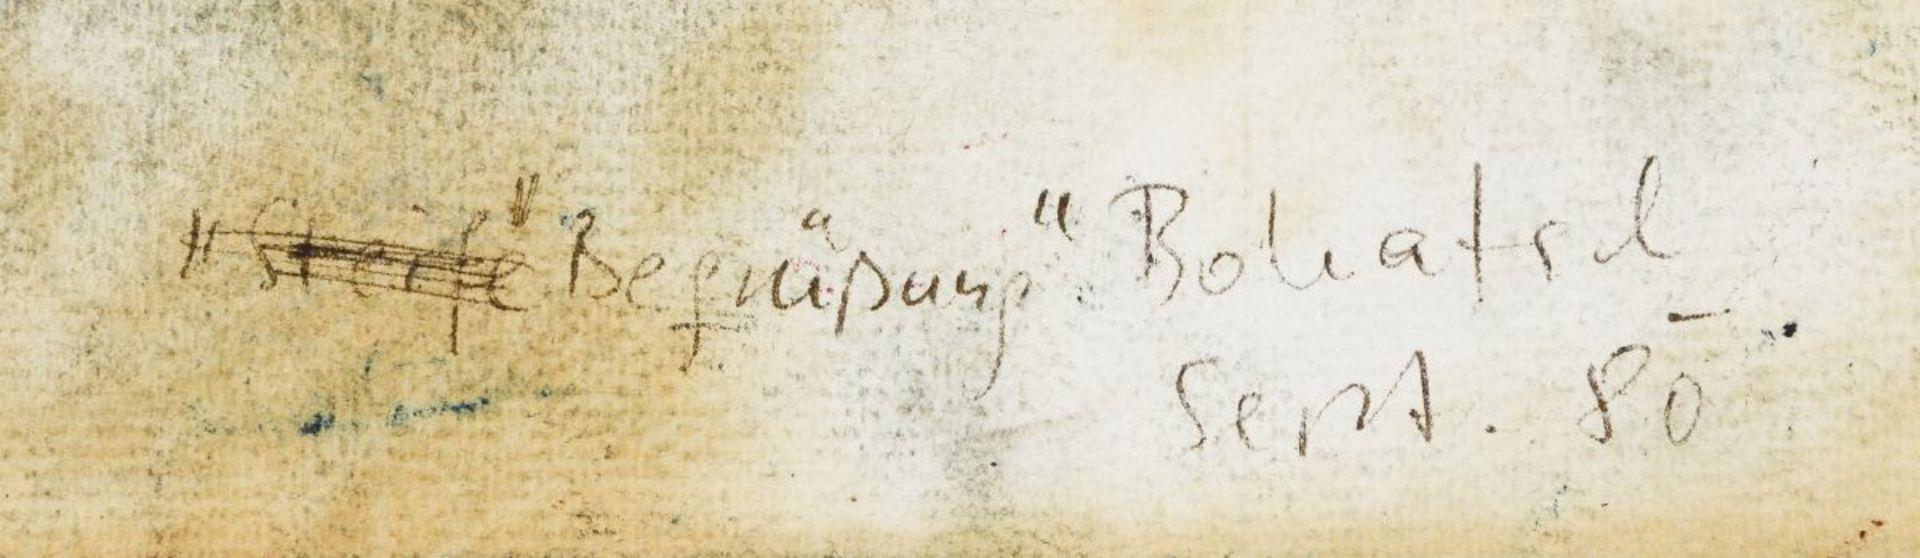 "Steife" Begrüßung" Bohatsch
Sept. 80